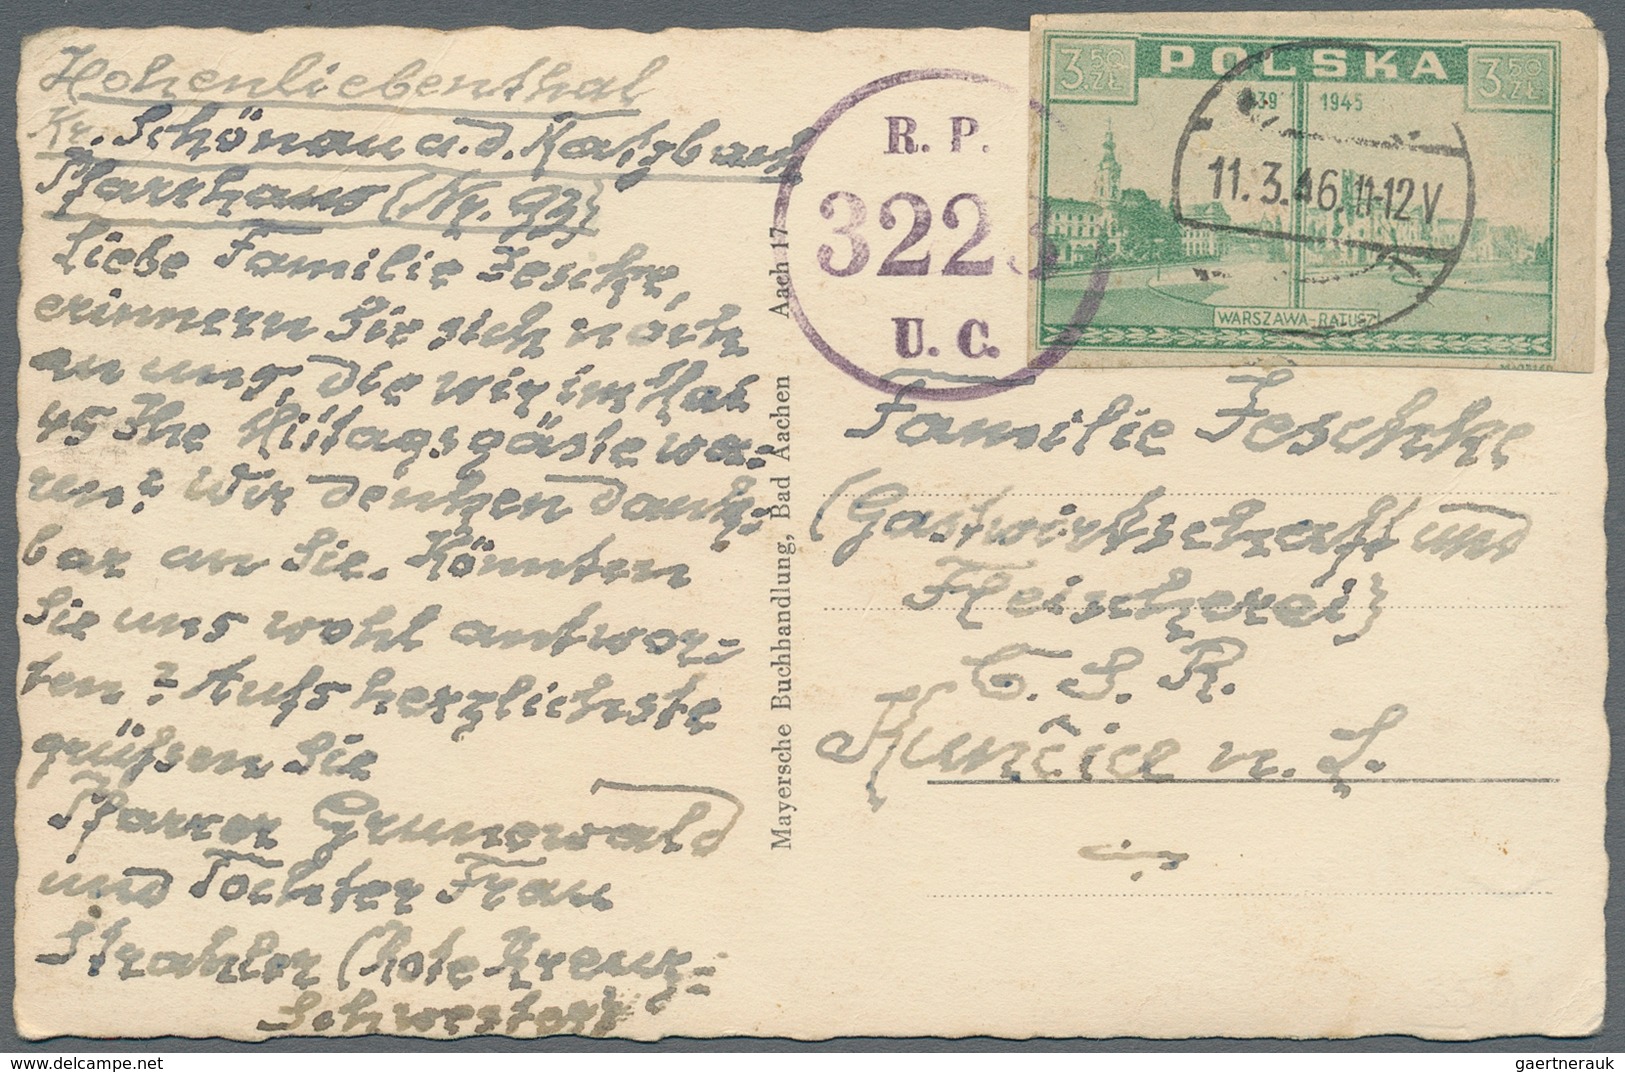 Hohenliebenthal
Kr. Schönau a. d. Katzbach
Pfarrhaus (Nr. 93)
Liebe Familie Jeschke,
erinnern Sie sich noch
an uns, die wir im Mai
45 Ihre Mittagsgäste wa-
ren? Wir denken dank-
bar an Sie. Könnten
Sie uns wohl antwor-
ten? Aufs herzlichste
grüßen Sie
Pfarrer Grunewald
und Tochter Frau
Strahler (Rote Kreuz-
Schwester)
Mayersche Buchhandlung, Bad Aachen Aach 17
R. P.
3223
U. C.
3.50 ZŁ. POLSKA 3.50 ZŁ.
939 1945
11.3.46.11-12V
WARSZAWA-RATUSZ
Familie Jeschke
(Gastwirtschaft und
Fleischerei)
Č. S. R.
Kunčice n. L.
gaertnerauk